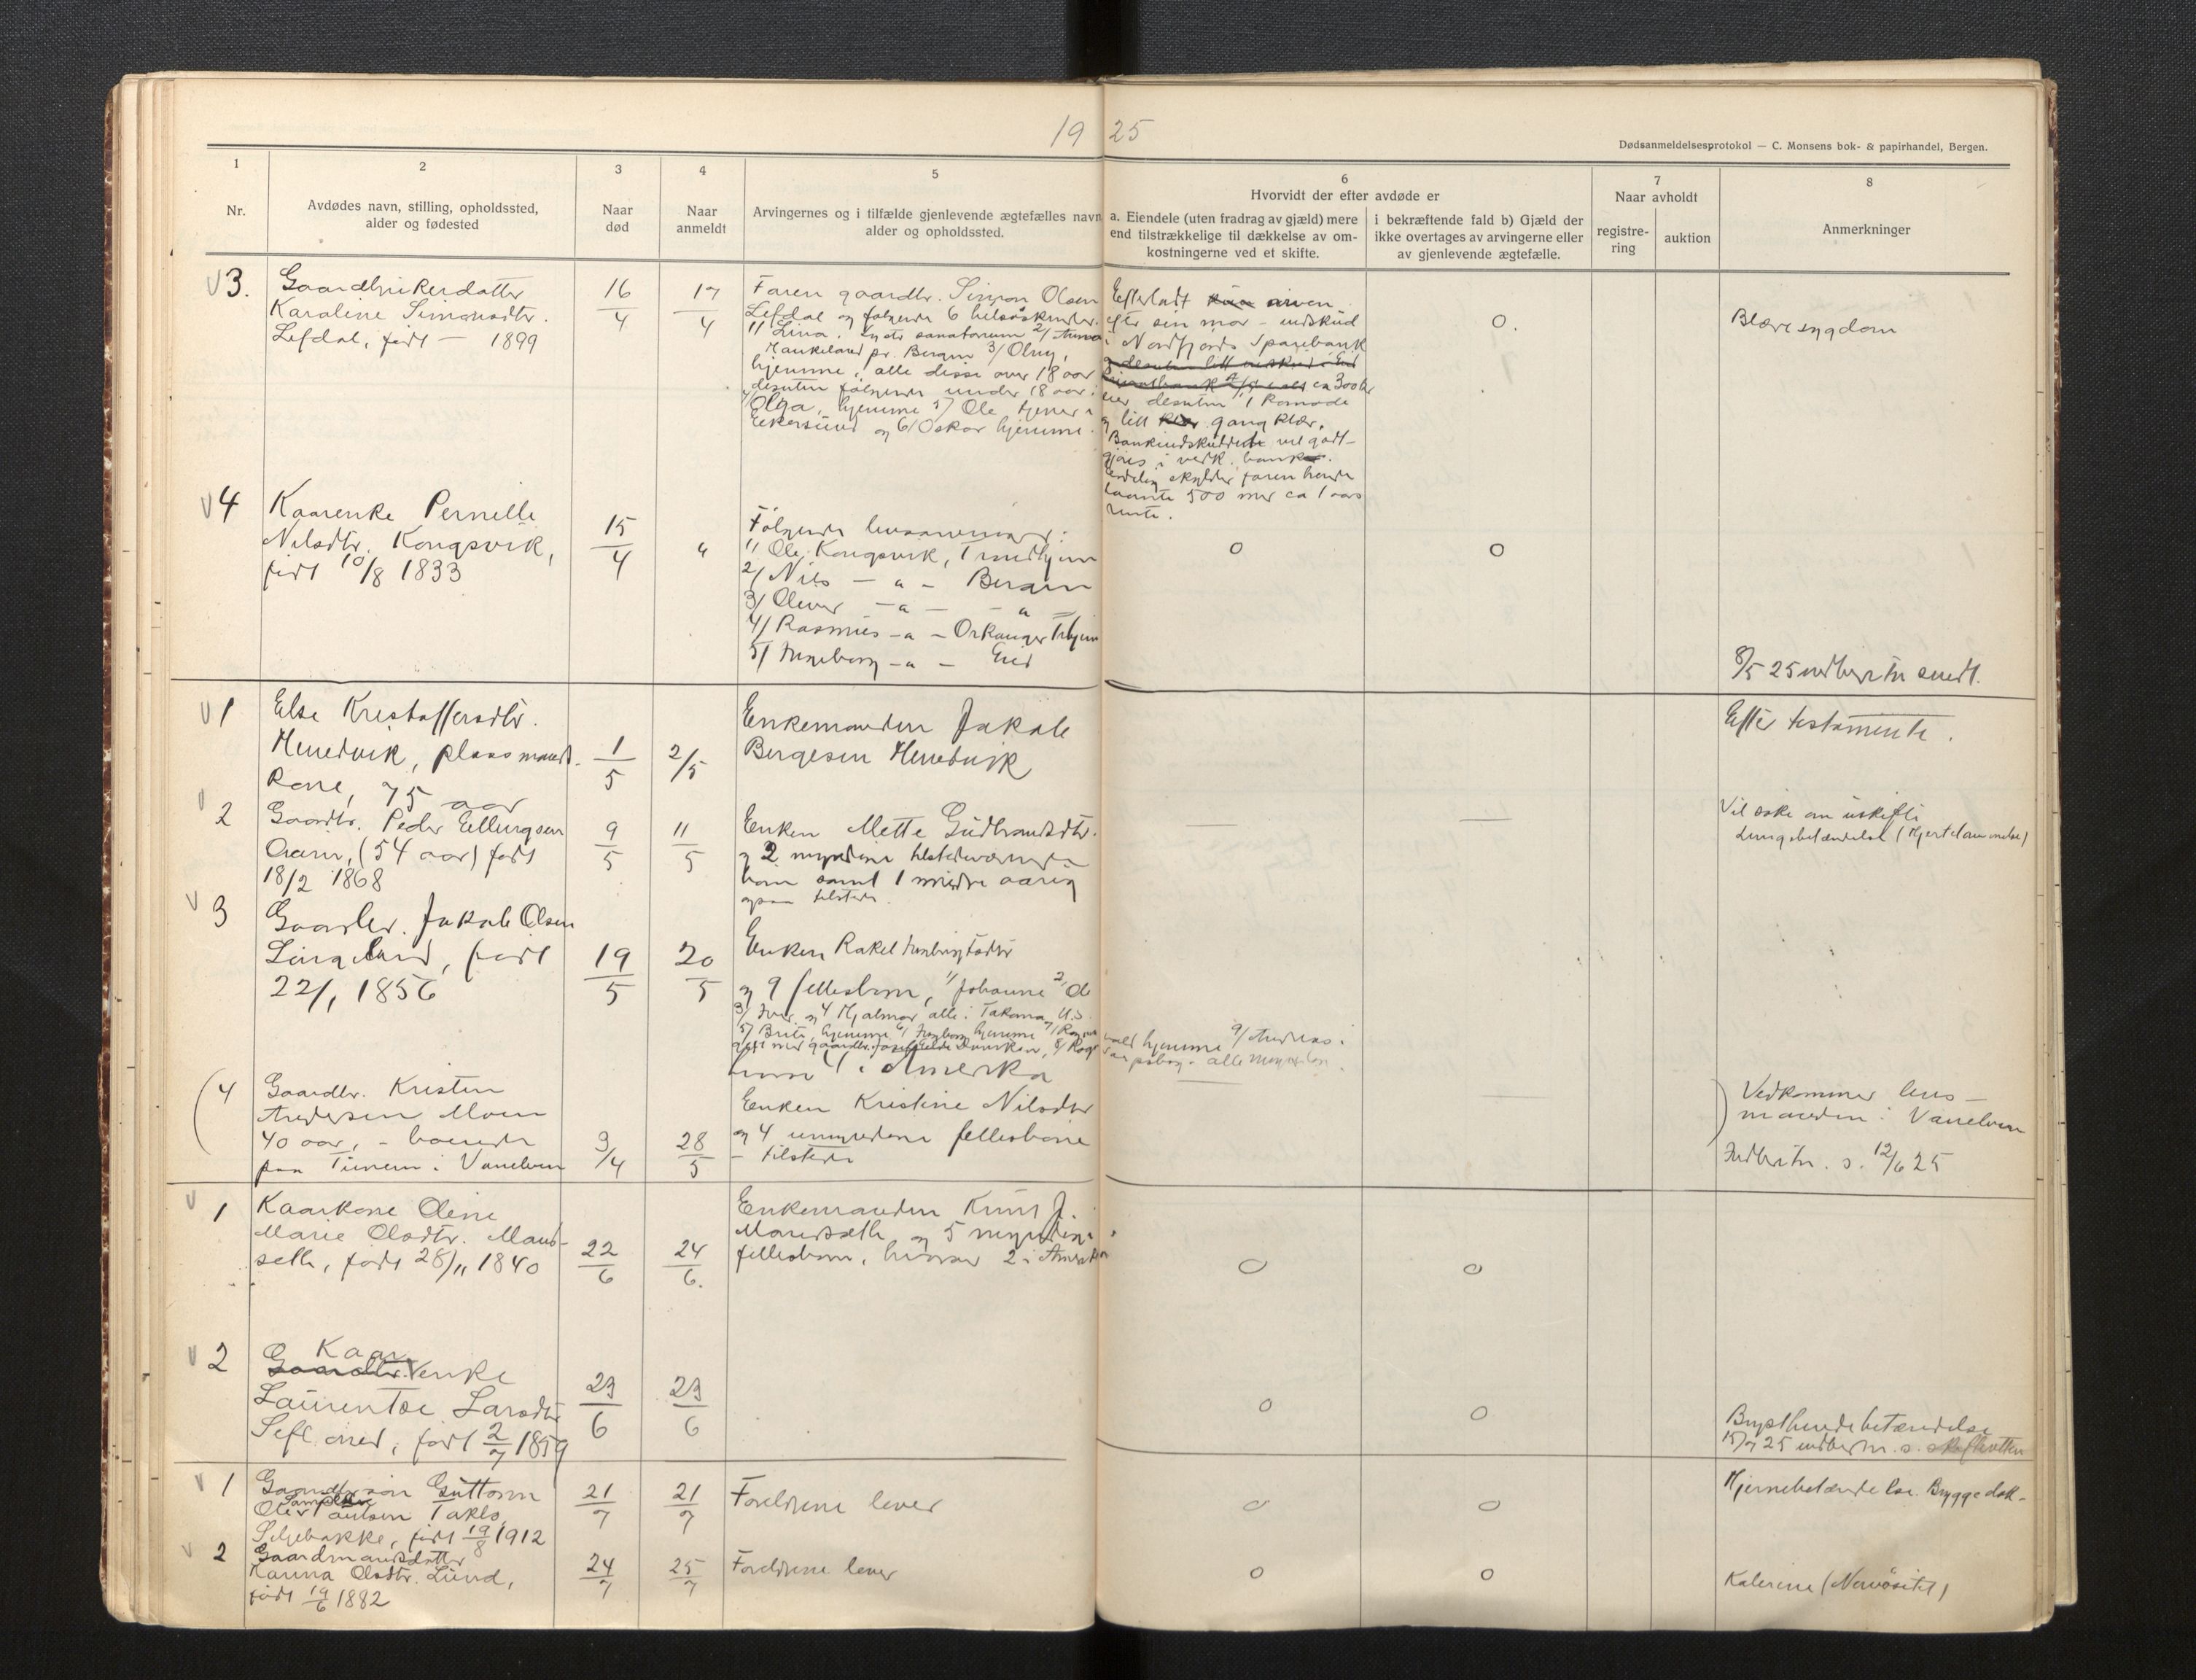 19 25
Dødsanmeldelsesprotokol — C. Monsens bok- & papirhandel, Bergen.
1
2
3
4
5
6
7
8
Nr.
Avdødes navn, stilling, opholdssted,
alder og fødested
Naar
død
Naar
anmeldt
Arvingernes og i tilfælde gjenlevende ægtefælles navn
alder og opholdssted.
Hvorvidt der efter avdøde er
a. Eiendele (uten fradrag av gjæld) mere
end tilstrækkelige til dækkelse av om-
kostningerne ved et skifte.
i bekræftende fald b) Gjæld der
ikke overtages av arvingerne eller
av gjenlevende ægtefælle.
Naar avholdt
registre-
ring
auktion
Anmerkninger
V 3.
Gaardbrukerdatter
Karoline Simonsdtr.
Lefdal, født — 1899
16/4
17/4
Faren gaardbr. Simon Olsen
Lefdal og følgende 6 helsøskender.
1/ Lina, Lyster sanatorium 2/ Anna
Haukeland pr. Bergen 3/ Oluf,
hjemme, alle disse over 18 aar
desuten følgende under 18 aar:
4/ Olga, hjemme 5/ Ole tjener i
Eikersund og 6/ Oskar hjemme.
Efterladt arven
efter sin mor – indskud
i Nordfjords Sparebank
ca 300 kr
eier desuten 1 komode
og litt gang klær.
Bankindskuddet vel godt-
gjøres i vedk. bank.
Endelig skylder faren hende
laante 500 mer ca 1 aars
rente.
0.
Blæresygdom
V 4
Kaarenke Pernille
Nilsdtr. Kongsvik,
født 10/8 1833
15/4
"
Følgende livsarvinger:
1/ Ole Kongsvik, Trondhjem
2/ Nils — " — Bergen
3/ Oliver — " — "
4/ Rasmus — " — Orkanger Trhjem
5/ Ingeborg — " — Eid
0
0
8/5 25 indber. tr. sendt.
V 1
Else Kristoffersdtr.
Hennedvik, plassmands-
kone, 75 aar
1/5
2/5
Enkemanden Jakob
Bergesen Hennedvik
Efter testamente.
V 2
Gaardbr. Peder Ellingsen
Aarin, (54 aar) født
18/2 1868
9/5
11/5
Enken Mette Gudbrandsdtr.
og 2 myndige tilstedeværende
barn samt 1 mindre aarig
ogsaa tilstede.
—
—
Vil søke om uskifte
Lungebetændelse (Hjertelammelse)
V 3
Gaardbr. Jakob Olsen
Lingelund, født
22/1 1856
19/5
20/5
Enken Rakel Ingebrigtsdtr
og 9 fellesbarn, 1/ Johanne 2/ Ole
3/ Iver og 4 Hjalmar alle i Takoma, U.S.
5/ Brite, hjemme 6/ Ingeborg hjemme
hjemme 9/ Andreas i
alle myndige.
i Amerika
(4
Gaardbr. Kristen
Andersen Moen
40 aar, – boende
paa Tunem i Vanelven
3/4
28/5
Enken Kristine Nilsdtr
og 4 umyndige fellesbarn
— tilstede
—
—
) Vedkommer lens-
manden i Vanelven
Indber. tr. s. 12/6 25
V 1
Kaarkone Oline
Marie Olsdtr. Mand-
seth, født 28/11 1840
22/6
24/6.
Enkemanden Knut J.
Mandseth og 5 myndige
fellesbarn, hvorav 2 i Amerika
0
0
V 2
Kaar
Gaardbr. enke
Laurentse Larsdtr
født 2/7 1859
23/6
23/6
0
0
Brysthindebetændelse
15/7 25 indber. tr. s. skifteretten
V 1
Gaardbr søn Guttorm
Taklo,
Seljebakke, født 19/8 1912
21/7
21/7
Foreldrene lever
0
0
Hjernebetændelse. Bryggedok-
V 2
Gaardmandsdatter
Karina Olsdtr. Lund,
født 19/6 1882
24/7
25/7
Foreldrene lever
0
0
Kolerine (Nervøsitet)